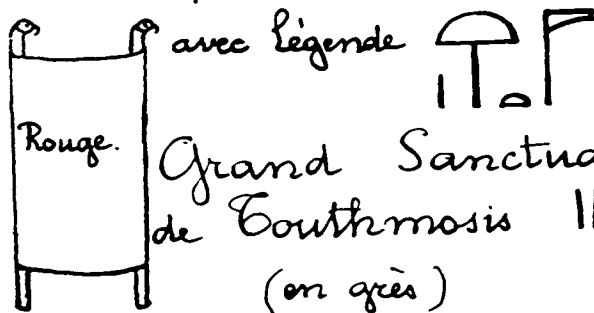 avec légende
Rouge.
Grand Sanctua
de Touthmosis II
(en grès)